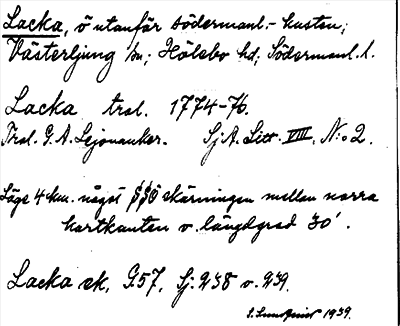 Lacka, ö utanför södermanl.-kusten;
Västerljung sn; Hölebo hd; Södermanl. l.
Lacka trol. 1774-76.
Trol. G. A. Lejonanker. SjA. Litt. VIII, N:o 2.
Läge 4 km. något SSO skärningen mellan norra
kartkanten o. längdgrad 30'.
Lacka ek, G57, Sj. 238 o. 239.
1939.